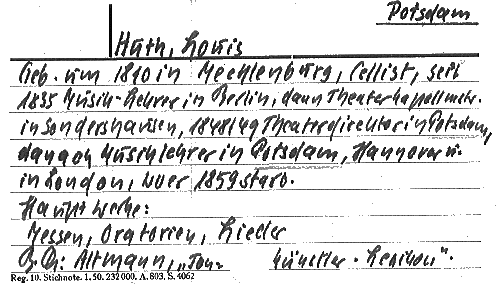 Potsdam
Huth, Louis
Geb. um 1810 in Mecklenburg, Cellist, seit
1835 Musik-Lehrer in Berlin, dann Theaterkapellmstr.
in Sondershausen, 1848/49 Theaterdirektor in Potsdam,
danach Musiklehrer in Potsdam, Hannover u.
in London, wo er 1859 starb.
Hauptwerke:
Messen, Oratorien, Lieder
Altmann, „Ton-
künstler-Lexikon".
Reg. 10. Stichnote. 1. 50. 232 000. A. 803. S. 4062